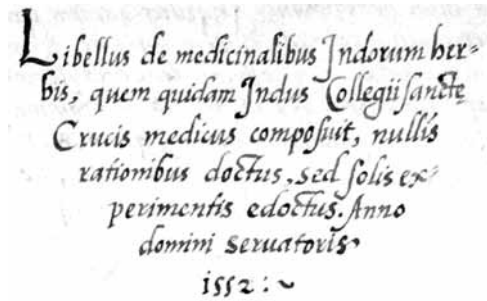 Libellus de medicinalibus Indorum her=
bis, quem quidam Indus Collegii sancte
Crucis medicus composuit, nullis
rationibus doctus, sed solis ex=
perimentis edoctus. Anno
domini seruatoris
1552 :~